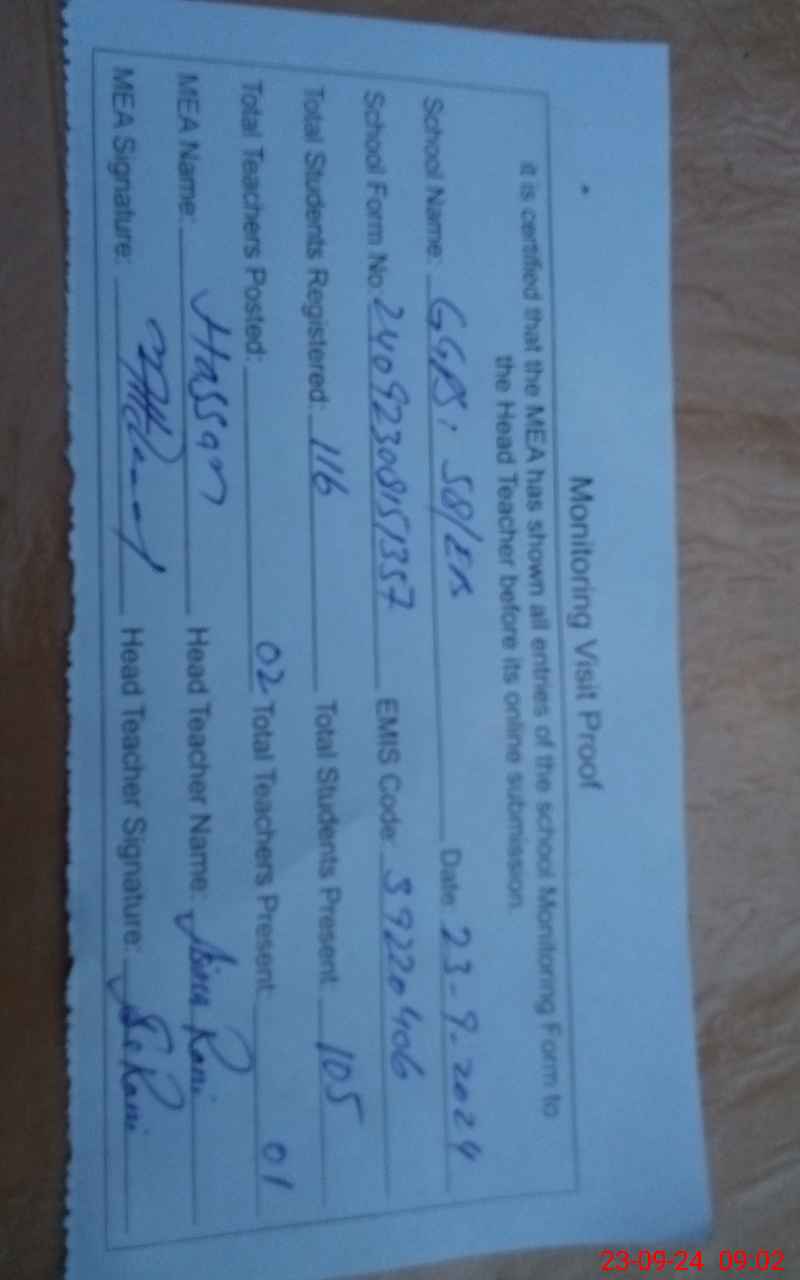 Monitoring Visit Proof
it is certified that the MEA has shown all entries of the school Monitoring Form to
the Head Teacher before its online submission.
School Name: GGPS, 58/EB Date: 23-9-2024
School Form No. 24092308151357 EMIS Code: 39220406
Total Students Registered: 116 Total Students Present: 105
Total Teachers Posted: 02 Total Teachers Present: 01
MEA Name: Hassan Head Teacher Name: Rani
MEA Signature: Head Teacher Signature:
23-09-24 09:02